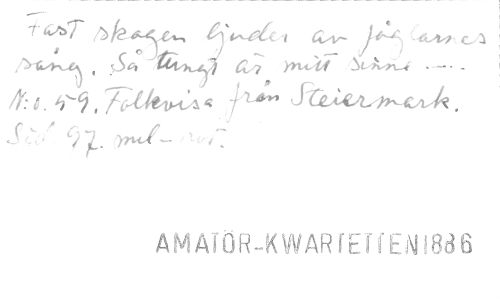 Fast skogen ljuder av fåglarnes
sång. Så tungt är mitt sinne ....
N:o. 59. Folkvisa från Steiermark.
Sid 97. mel-
AMATÖR-KWARTETTEN 1886